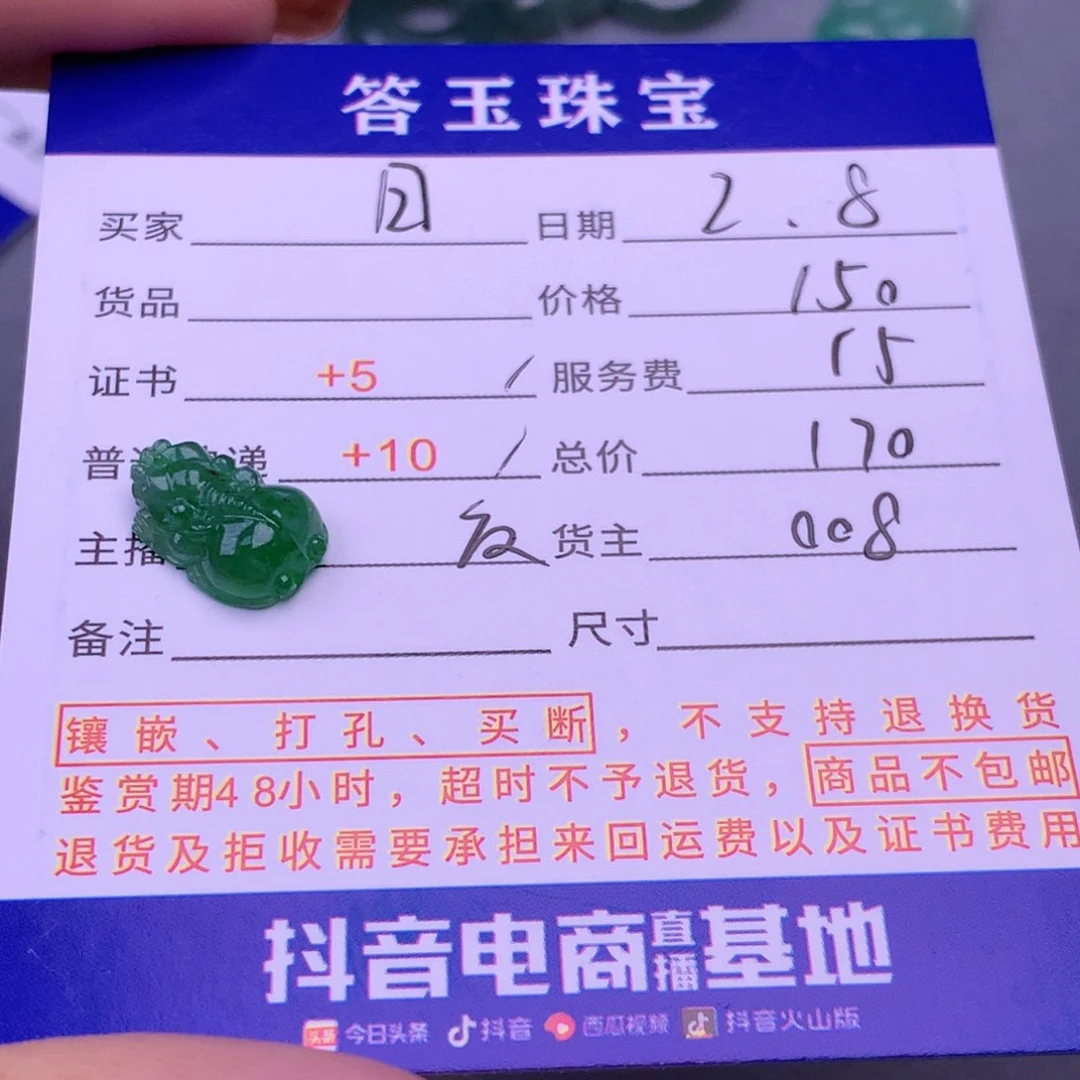 答玉珠宝
买家 日期 2.8
货品 价格 150
证书 +5 / 服务费 15
普 递 +10 / 总价 170
主播 货主 008
备注 尺寸
镶嵌、打孔、买断，不支持退换货
鉴赏期48小时，超时不予退货，商品不包邮
退货及拒收需要承担来回运费以及证书费用
抖音电商直播基地
头条 今日头条 抖音 西瓜视频 抖音火山版